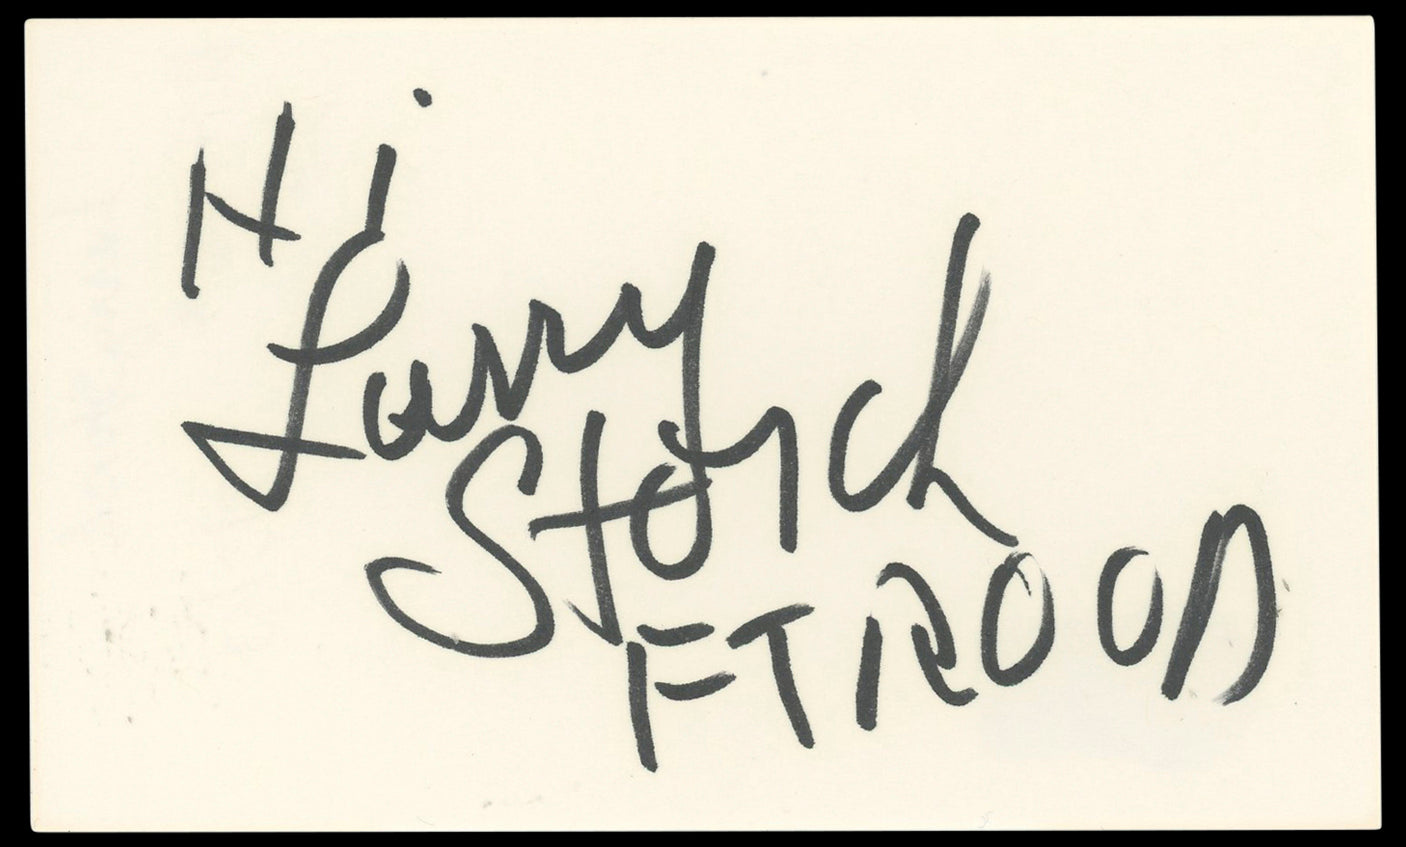 Hi
Larry
Storch
FTROOP